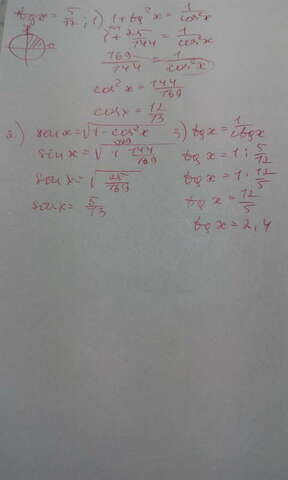 tg x = 5/12; 1) 1 + tg²x = 1/cos²x
1 + 25/144 = 1/cos²x
169/144 = 1/cos²x
cos²x = 144/169
cos x = 12/13
2) sin x = √(1 - cos²x)
sin x = √(1 - 144/169)
sin x = √(25/169)
sin x = 5/13
3) tg x = 1/ctg x
tg x = 1 : 5/12
tg x = 1 · 12/5
tg x = 12/5
tg x = 2,4